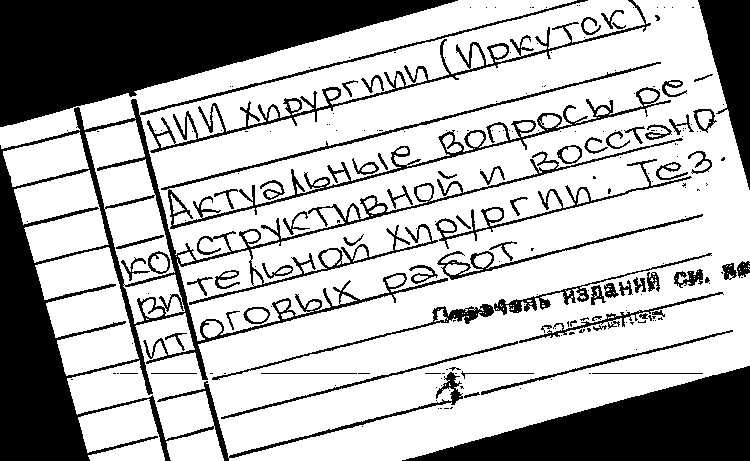 НИИ хирургии (Иркутск).
Актуальные вопросы ре-
конструктивной и восстано-
вительной хирургии: Тез.
итоговых работ.
Перечень изданий см. на